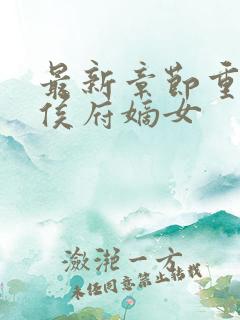 最新章节重
侯府嫡女
潋滟一方
未经同意禁止转载